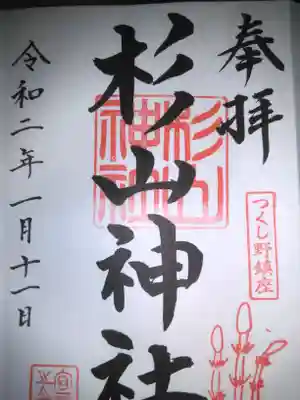 奉拝
つくし野鎮座
杉山神社
杉山神社
令和二年一月十一日